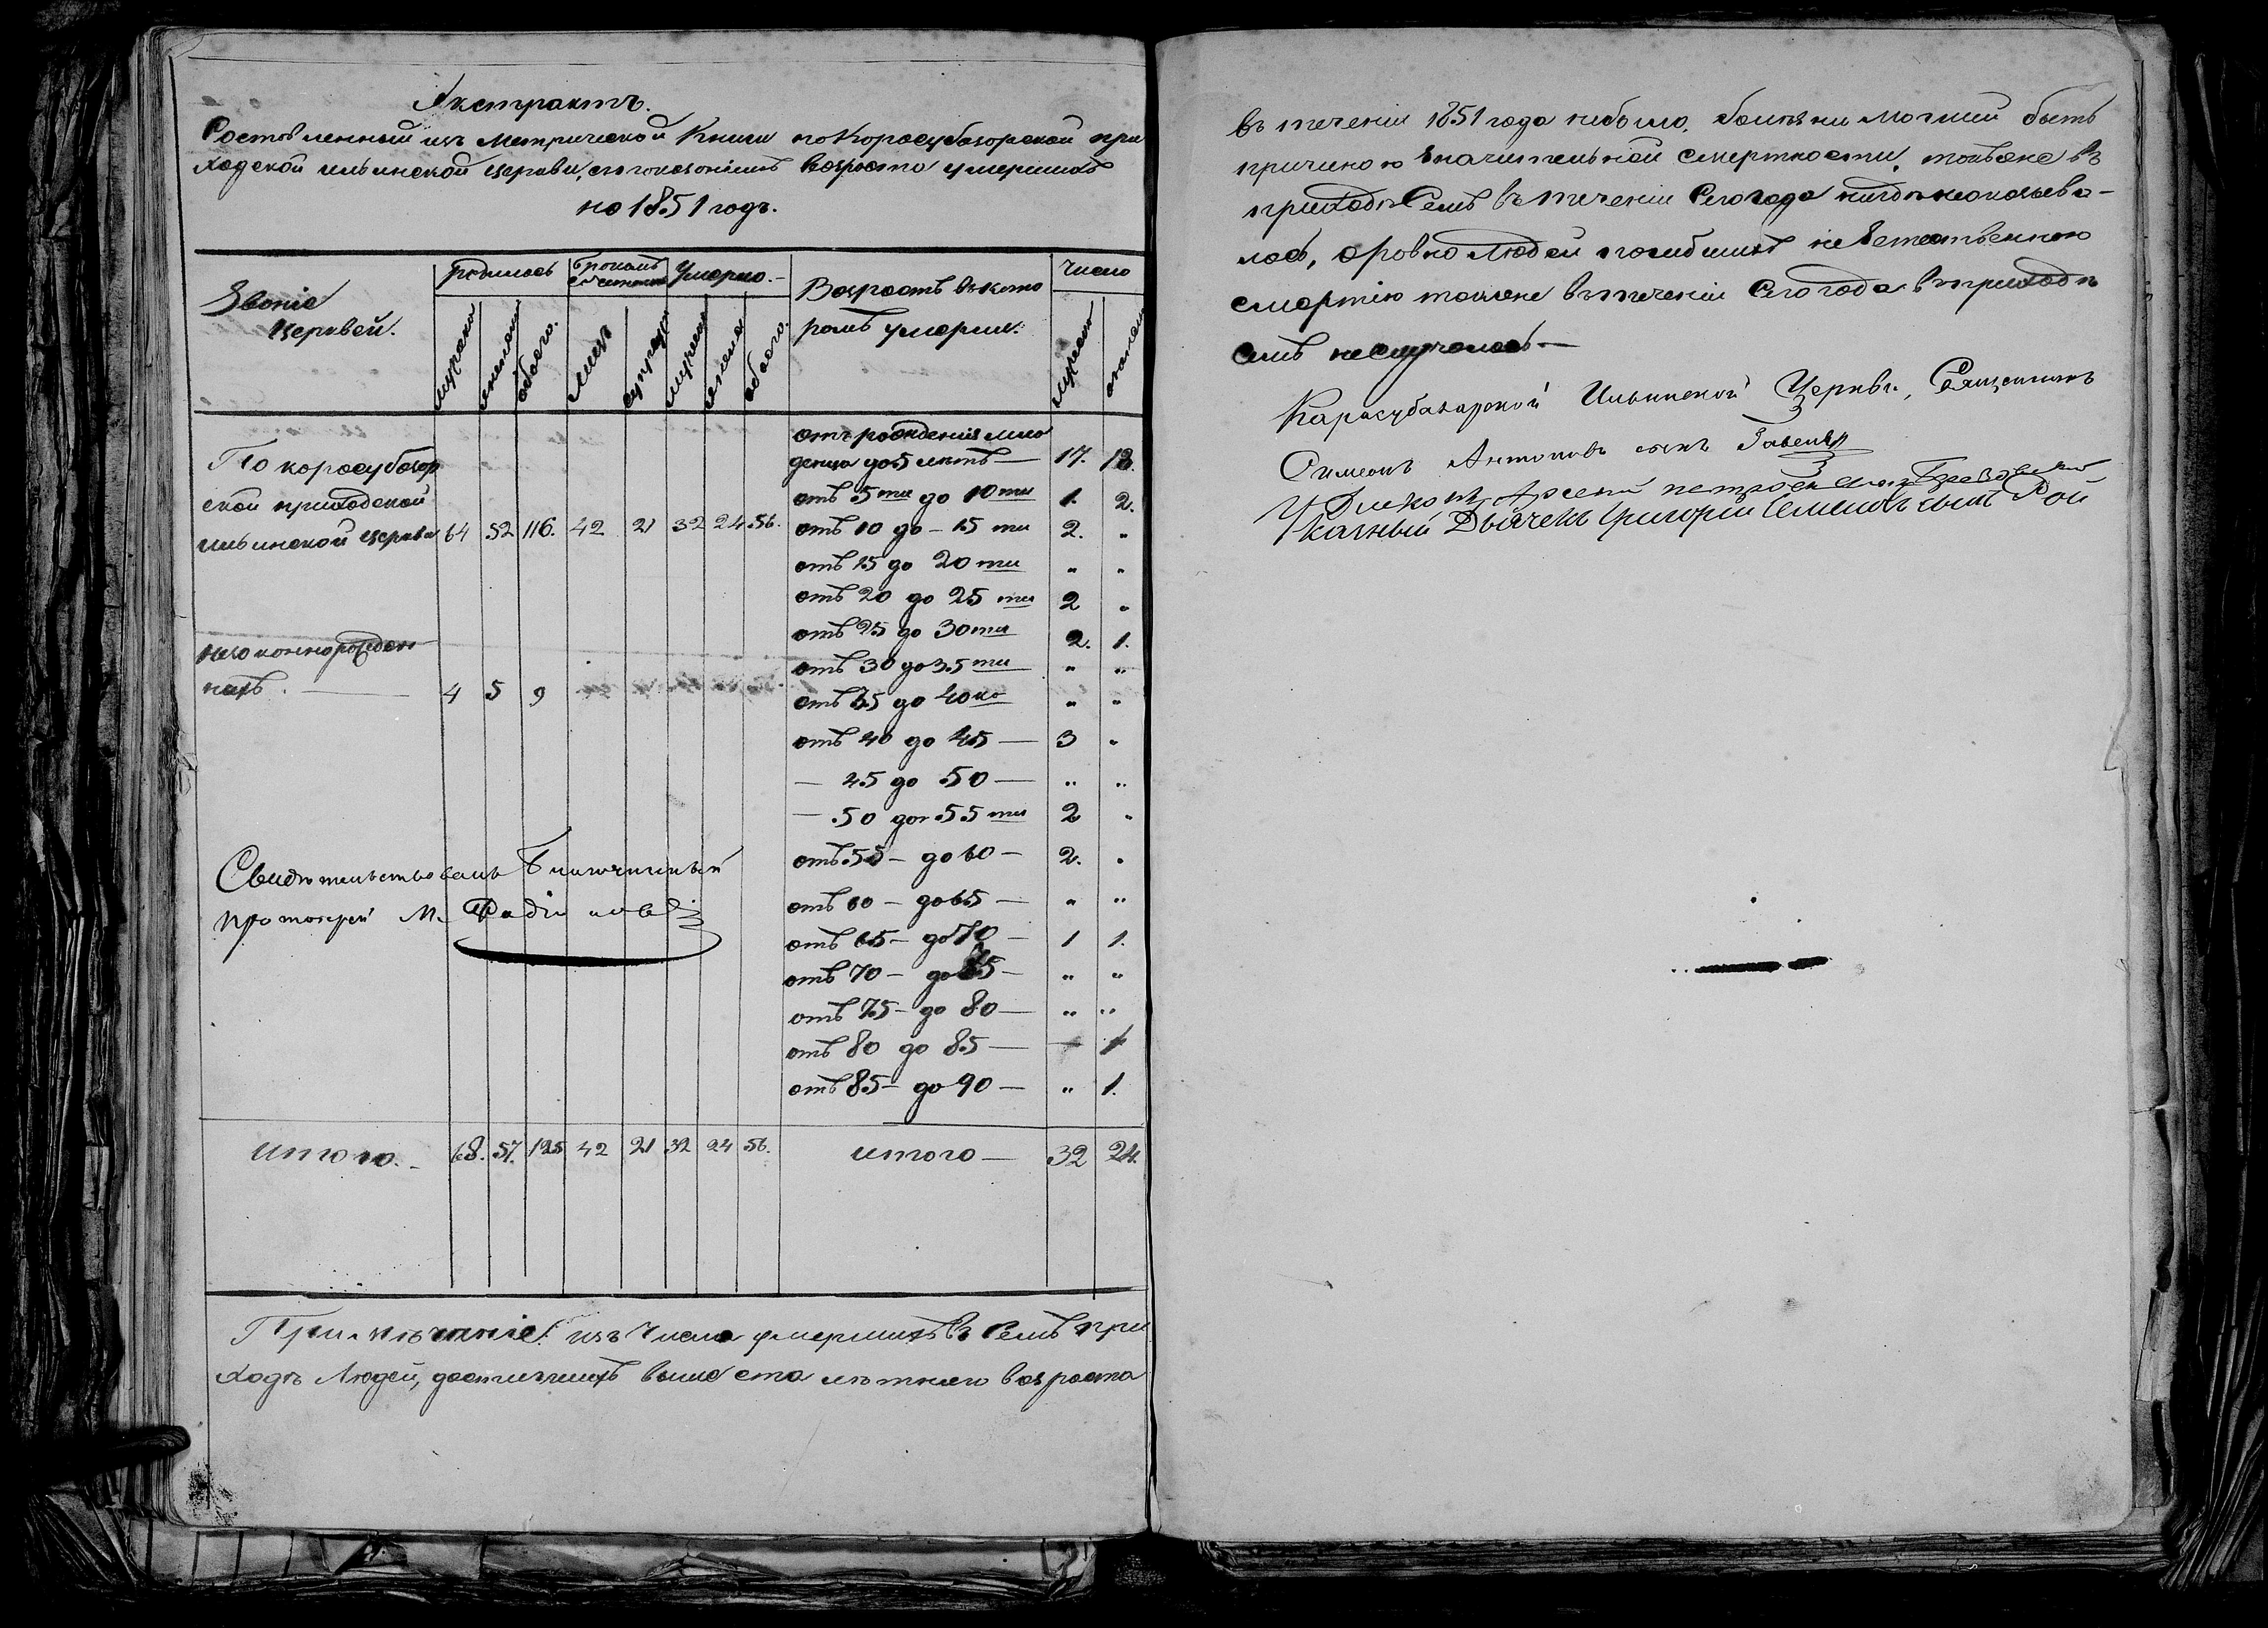 Экстрактъ.
Составленный изъ Метрической Книги по Карасубазарской при
ходской ильинской церкви, съ показаніемъ возраста умершихъ
на 1851 годъ.
Званіе церквей. родилось бракомъ сочетано Умерло. Возрастъ въ кото ромъ умерли. Число
мужеска женска обоего. лицъ супруж мужеска женска обоего. мужеска женска
По карасубазар
ской приходской
ильинской церкви 64 52 116. 42 21 32 24 56.
незаконнорожден
ныхъ. — 4 5 9
отъ рожденія мла
денца до 5 летъ — 17. 18.
отъ 5 ти до 10 ти 1. 2.
отъ 10 до — 15 ти 2. „
отъ 15 до 20 ти „ „
отъ 20 до 25 ти 2 „
отъ 25 до 30 ти 2. 1.
отъ 30 до 35 ти „ „
отъ 35 до 40 ка „ „
отъ 40 до 45 — 3 „
— 45 до 50 — „ „
— 50 до 55 ти 2 „
отъ 55 — до 60 — 2. „
отъ 60 — до 65 — „ „
отъ 65 — до 70 — 1 1.
отъ 70 — до 75 — „ „
отъ 75 — до 80 — „ „
отъ 80 до 85 — — 1
отъ 85 — до 90 — „ 1.
Свидѣтельствовалъ Благочинный
протоіерей М.
итого. — 68. 57. 125 42 21 32 24 56. итого — 32 24.
Примѣчаніе: изъ числа умершихъ въ семъ при
ходѣ Людей, достигшихъ выше ста лѣтняго возраста
въ теченіи 1851 года небыло, болѣзни могшей быть
причиною значительной смертности, тоже въ
приходѣ Семъ въ теченіи Сего года нигдѣ неоказыва-
лось, а ровно людей погибшихъ неестественною
смертію также въ теченіи Сего года въ приходѣ
семъ неслучалось —
Карасубазарской Ильинской Церкви, Священникъ
Симеонъ Антоновъ сынъ
Діаконъ Арсеній петровъ сынъ
Указный Дьячекъ григорій Семеновъ сынъ Рой